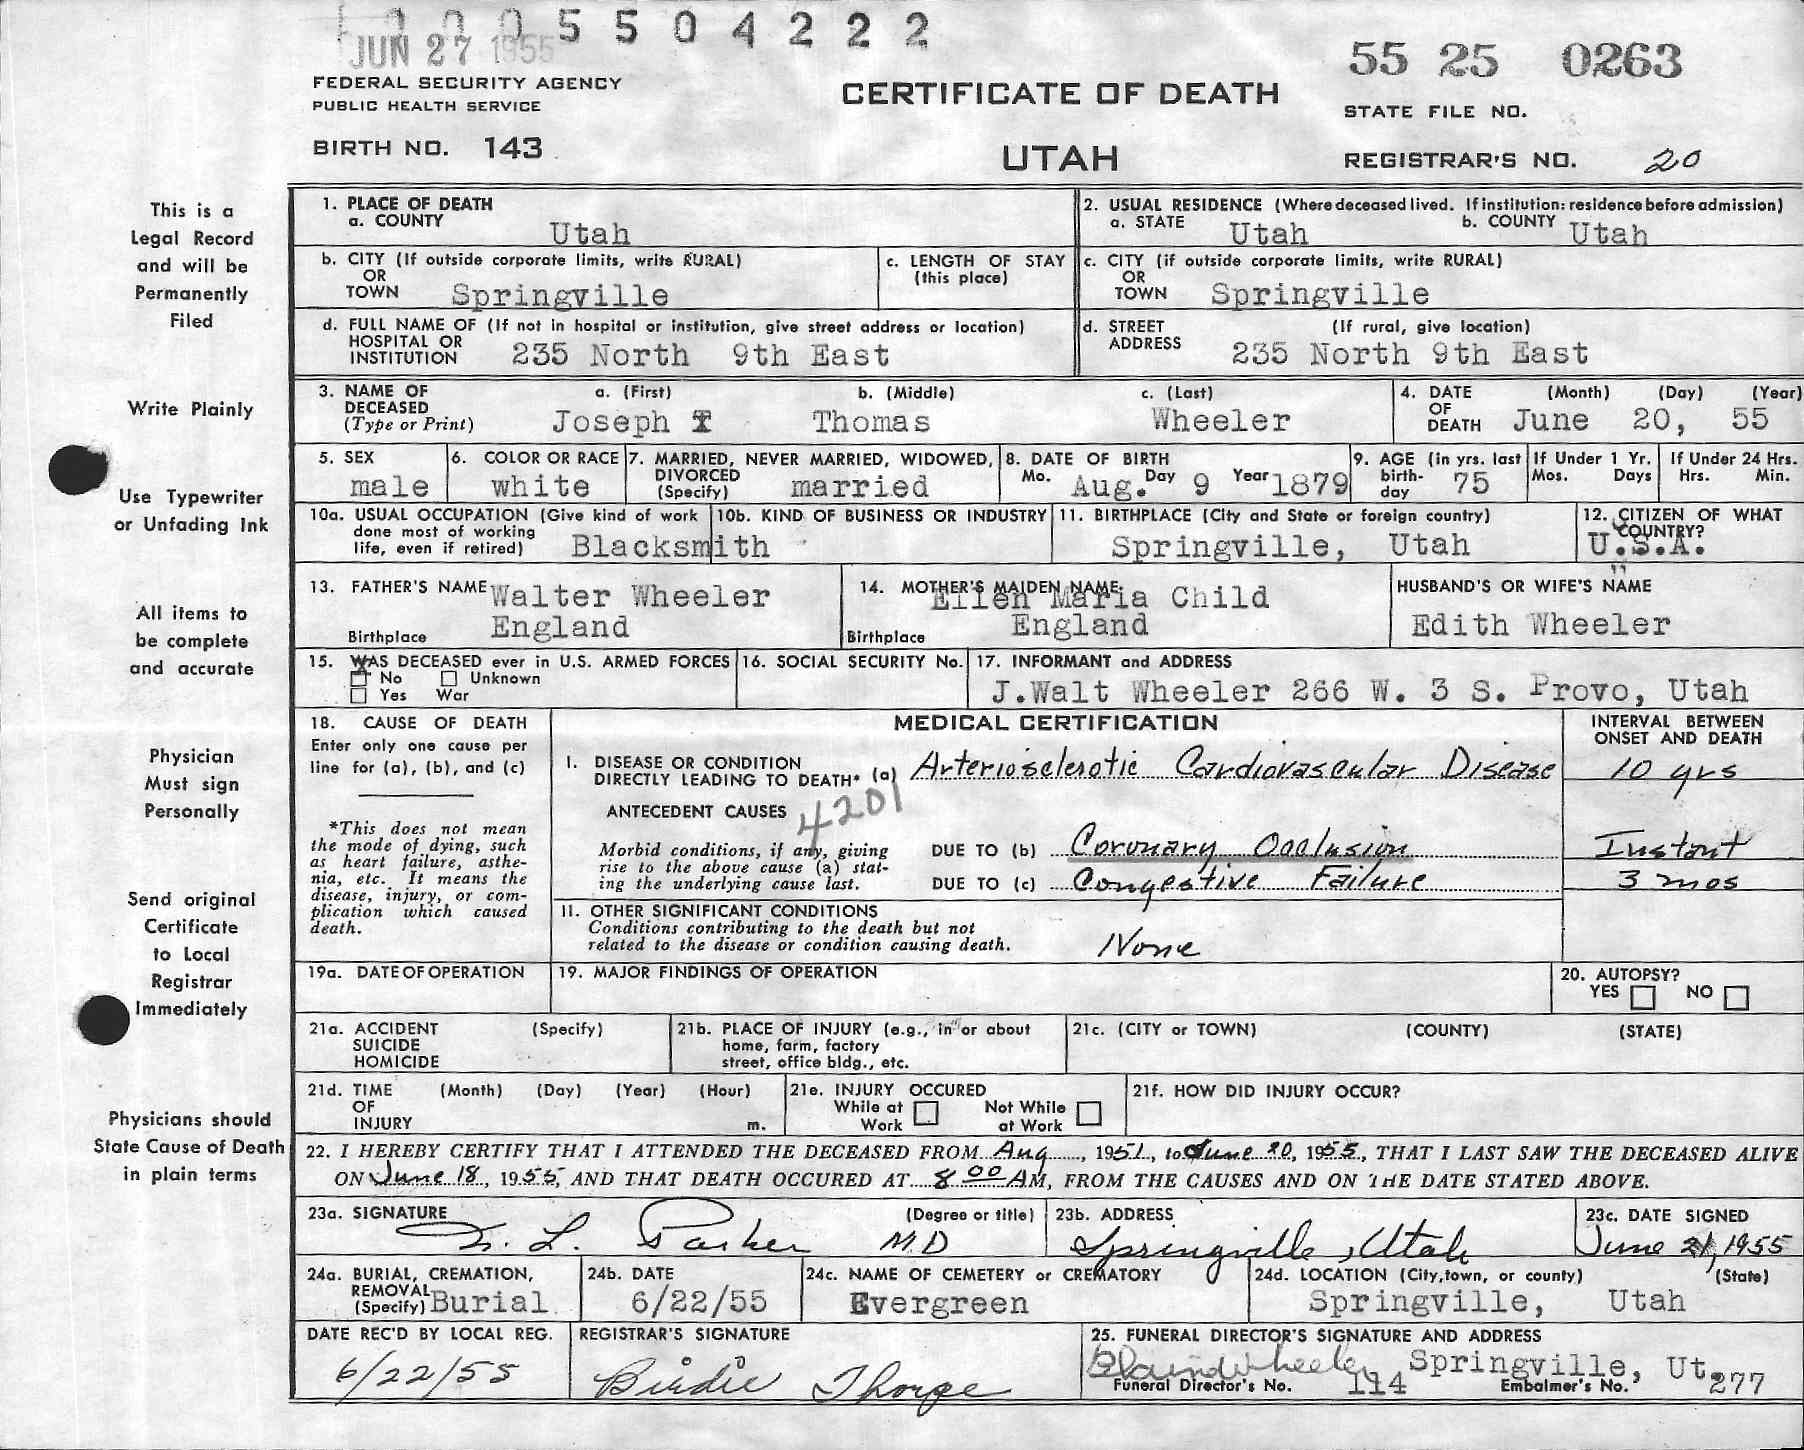 5 5 0 4 2 2 2
JUN 27 1955
55 25 0263
FEDERAL SECURITY AGENCY
PUBLIC HEALTH SERVICE
CERTIFICATE OF DEATH
STATE FILE NO.
BIRTH NO. 143
UTAH
REGISTRAR'S NO. 20
This is a
Legal Record
and will be
Permanently
Filed
Write Plainly
Use Typewriter
or Unfading Ink
All items to
be complete
and accurate
Physician
Must sign
Personally
Send original
Certificate
to Local
Registrar
Immediately
Physicians should
State Cause of Death
in plain terms
1. PLACE OF DEATH
a. COUNTY Utah
2. USUAL RESIDENCE (Where deceased lived. If institution: residence before admission)
a. STATE Utah b. COUNTY Utah
b. CITY (If outside corporate limits, write RURAL)
OR
TOWN Springville
c. LENGTH OF STAY
(this place)
c. CITY (if outside corporate limits, write RURAL)
OR
TOWN Springville
d. FULL NAME OF (If not in hospital or institution, give street address or location)
HOSPITAL OR
INSTITUTION 235 North 9th East
d. STREET (If rural, give location)
ADDRESS 235 North 9th East
3. NAME OF a. (First) b. (Middle) c. (Last)
DECEASED
(Type or Print) Joseph T Thomas Wheeler
4. DATE (Month) (Day) (Year)
OF
DEATH June 20, 55
5. SEX
male
6. COLOR OR RACE
white
7. MARRIED, NEVER MARRIED, WIDOWED,
DIVORCED
(Specify) married
8. DATE OF BIRTH
Mo. Aug. Day 9 Year 1879
9. AGE (in yrs. last
birth-
day 75
If Under 1 Yr.
Mos. Days
If Under 24 Hrs.
Hrs. Min.
10a. USUAL OCCUPATION (Give kind of work
done most of working
life, even if retired) Blacksmith
10b. KIND OF BUSINESS OR INDUSTRY
11. BIRTHPLACE (City and State or foreign country)
Springville, Utah
12. CITIZEN OF WHAT
COUNTRY?
U.S.A.
13. FATHER'S NAME Walter Wheeler
Birthplace England
14. MOTHER'S MAIDEN NAME Ellen Maria Child
Birthplace England
HUSBAND'S OR WIFE'S NAME
Edith Wheeler
15. WAS DECEASED ever in U.S. ARMED FORCES
No Unknown
Yes War
16. SOCIAL SECURITY No.
17. INFORMANT and ADDRESS
J.Walt Wheeler 266 W. 3 S. Provo, Utah
18. CAUSE OF DEATH
Enter only one cause per
line for (a), (b), and (c)
*This does not mean
the mode of dying, such
as heart failure, asthe-
nia, etc. It means the
disease, injury, or com-
plication which caused
death.
MEDICAL CERTIFICATION
INTERVAL BETWEEN
ONSET AND DEATH
I. DISEASE OR CONDITION
DIRECTLY LEADING TO DEATH* (a) Arteriosclerotic Cardiovascular Disease 10 yrs
ANTECEDENT CAUSES 4201
Morbid conditions, if any, giving
rise to the above cause (a) stat-
ing the underlying cause last.
DUE TO (b) Coronary Occlusion Instant
DUE TO (c) Congestive Failure 3 mos
II. OTHER SIGNIFICANT CONDITIONS
Conditions contributing to the death but not
related to the disease or condition causing death. None
19a. DATE OF OPERATION
19. MAJOR FINDINGS OF OPERATION
20. AUTOPSY?
YES NO
21a. ACCIDENT (Specify)
SUICIDE
HOMICIDE
21b. PLACE OF INJURY (e.g., in or about
home, farm, factory
street, office bldg., etc.
21c. (CITY or TOWN) (COUNTY) (STATE)
21d. TIME (Month) (Day) (Year) (Hour)
OF
INJURY m.
21e. INJURY OCCURED
While at Not While
Work at Work
21f. HOW DID INJURY OCCUR?
22. I HEREBY CERTIFY THAT I ATTENDED THE DECEASED FROM Aug, 1951, to June 20, 1955, THAT I LAST SAW THE DECEASED ALIVE
ON June 18, 1955, AND THAT DEATH OCCURED AT 8 00 AM, FROM THE CAUSES AND ON THE DATE STATED ABOVE.
23a. SIGNATURE (Degree or title)
L. Parker M.D
23b. ADDRESS
Springville, Utah
23c. DATE SIGNED
June 21, 1955
24a. BURIAL, CREMATION,
REMOVAL
(Specify) Burial
24b. DATE
6/22/55
24c. NAME OF CEMETERY or CREMATORY
Evergreen
24d. LOCATION (City, town, or county) (State)
Springville, Utah
DATE REC'D BY LOCAL REG.
6/22/55
REGISTRAR'S SIGNATURE
Birdie Thorpe
25. FUNERAL DIRECTOR'S SIGNATURE AND ADDRESS
Wheeler Springville, Ut.
Funeral Director's No. 114 Embalmer's No. 277